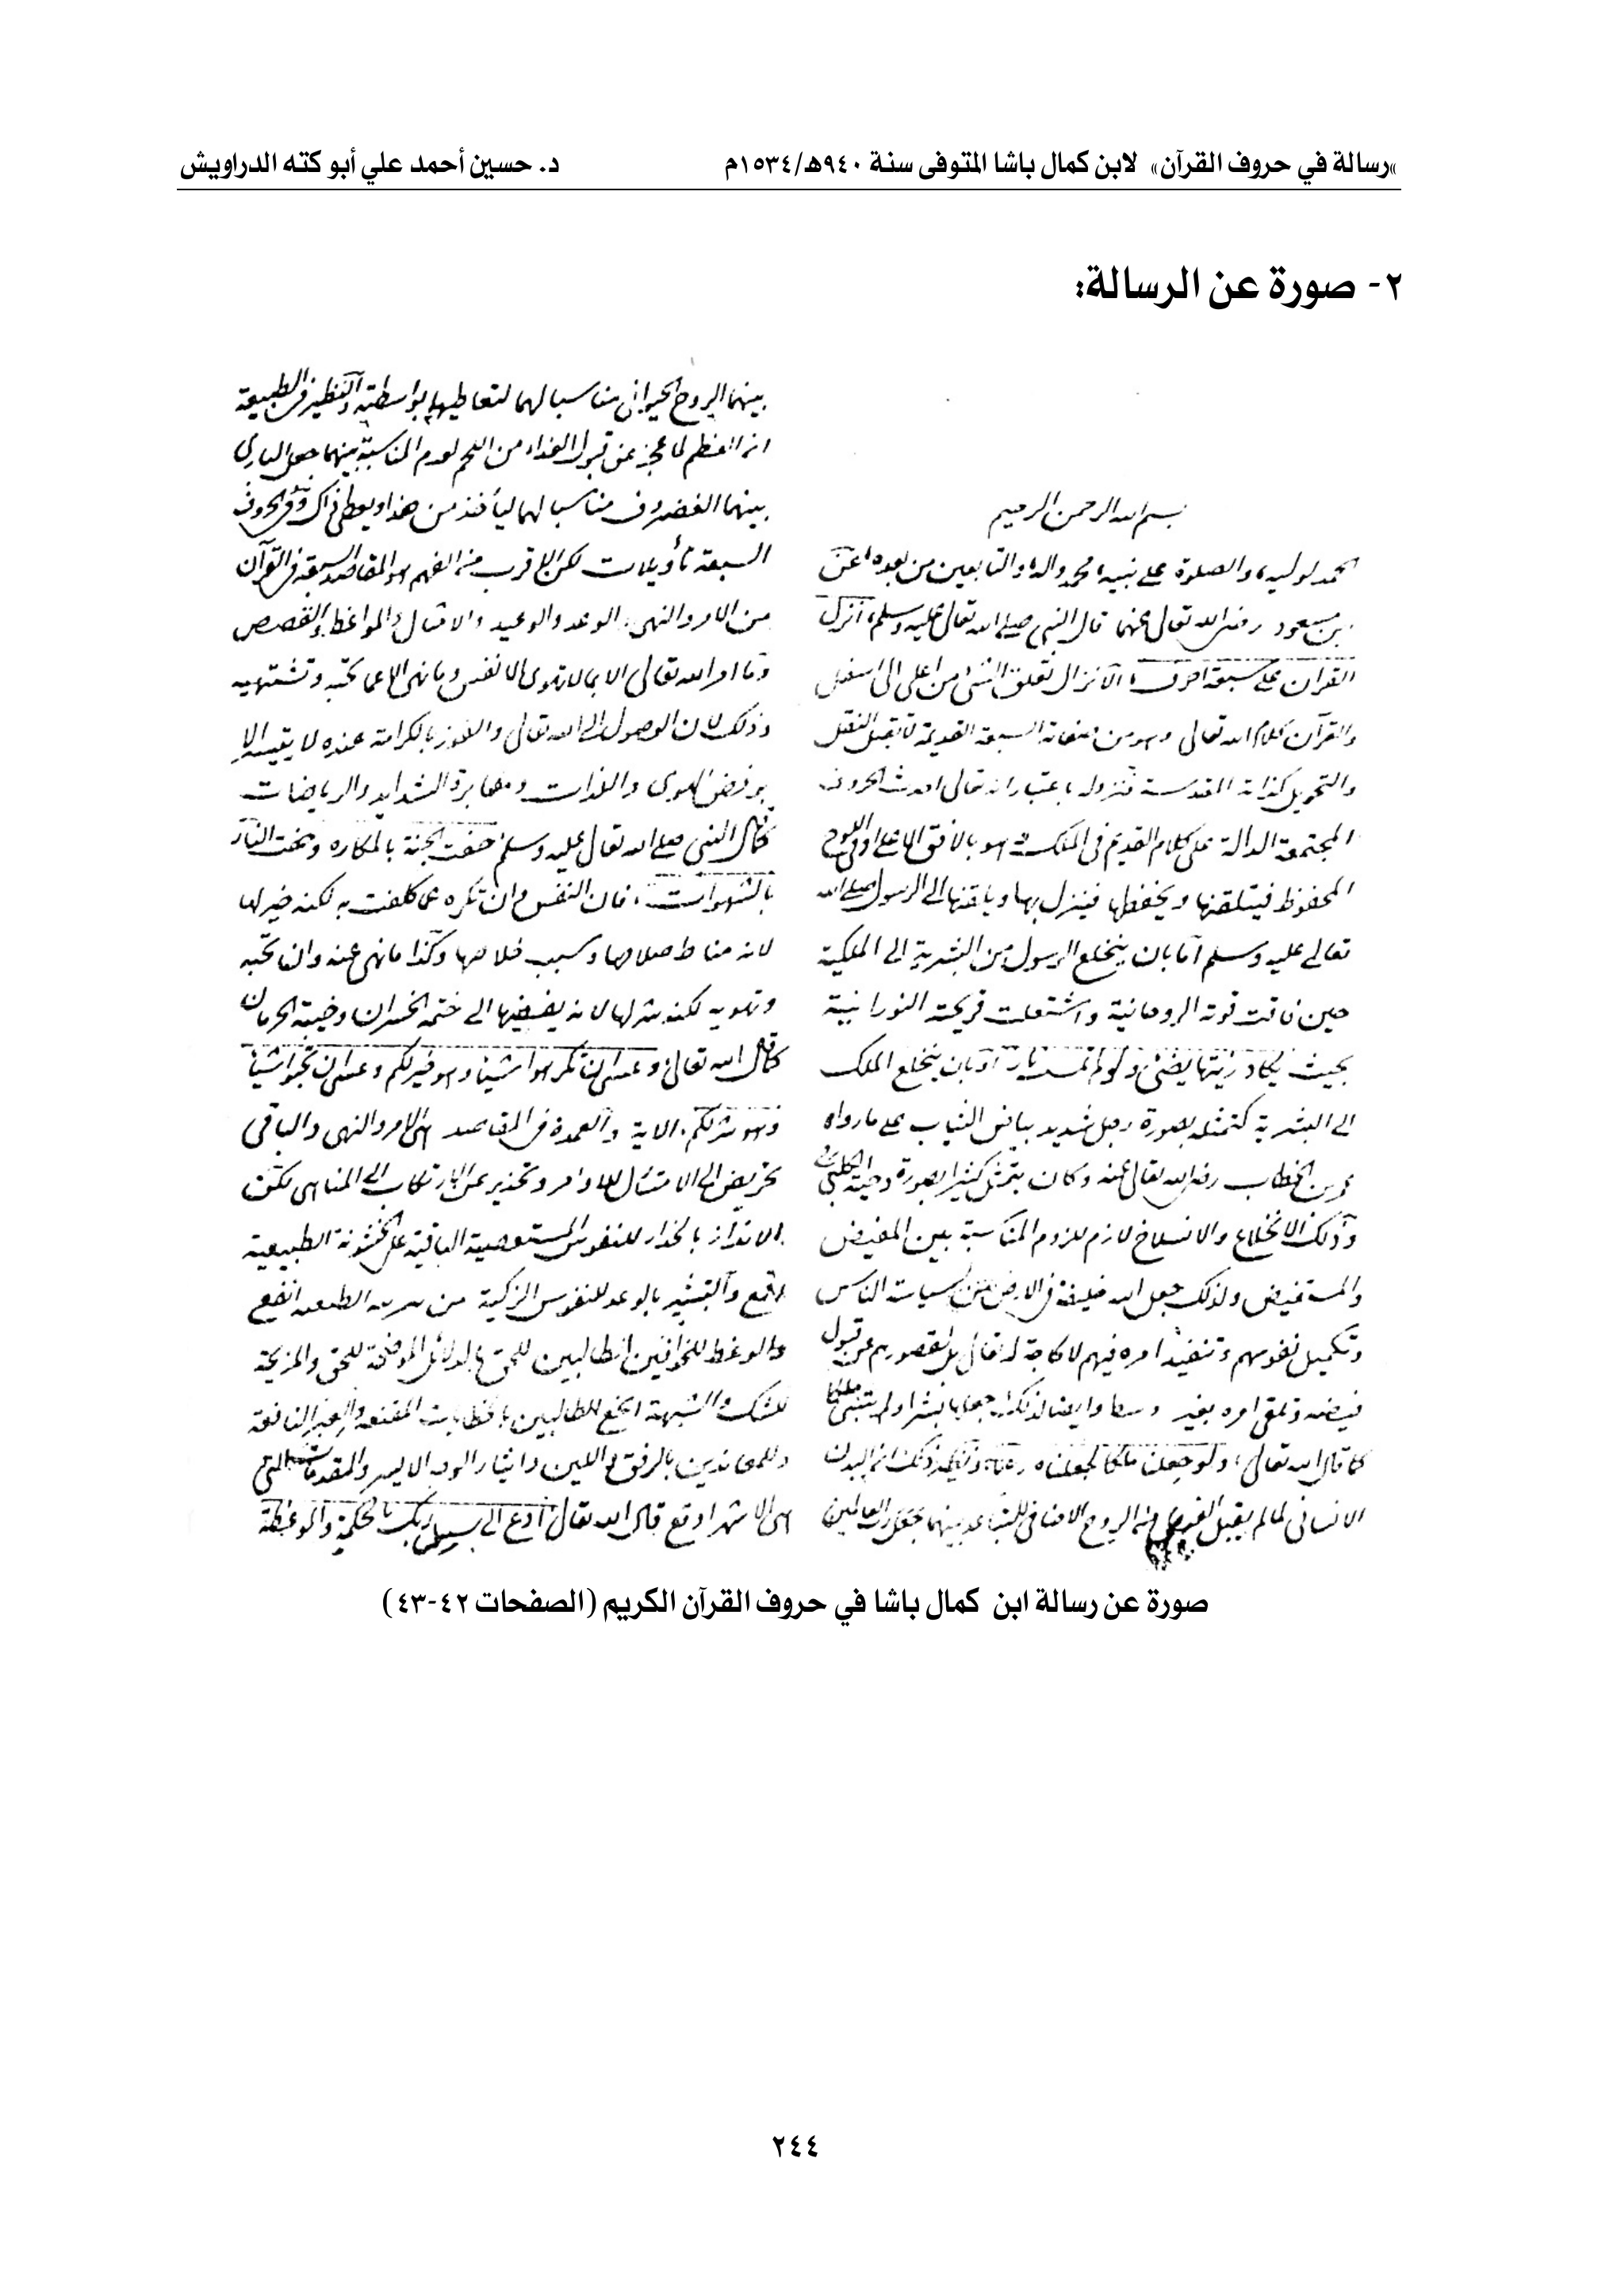 »رسالة في حروف القرآن« لابن كمال باشا المتوفى سنة ٩٤٠هـ/١٥٣٤م
د. حسين أحمد علي أبو كته الدراويش
٢- صورة عن الرسالة:
بسم الله الرحمن الرحيم
الحمد لوليه والصلوة على نبيه محمد واله والتابعين من بعده عن
بن مسعود رضي الله تعالى عنهما قال النبي صلى الله تعالى عليه وسلم انزل
القرآن على سبعة احرف الانزال تعلق الشئ من اعلى الى اسفل
والقرآن كلام الله تعالى وهو من صفاته السبعة القديمة لا يقبل النقل
والتحويل كذاته المقدسة فنزوله باعتبار انه تعالى احدث الحروف
المجتمعة الدالة على كلام القديم في الملك هو بالافق الاعلى او في اللوح
المحفوظ فيتلقنها ويحفظها فينزل بها ويلقنها الى الرسول صلى الله
تعالى عليه وسلم اما بان ينخلع الرسول من البشرية الى الملكية
حين فاقت قوته الروحانية واشتعلت قريحته النورانية
بحيث يكاد زيتها يضئ ولو لم تمسه نار او بان ينخلع الملك
الى البشرية كتمثله بصورة رجل شديد بياض الثياب على ما رواه
عمر بن الخطاب رضي الله تعالى عنه وكان يتمثل كثيرا بصورة دحية الكلبي
وذلك الانخلاع والانسلاخ لازم للزوم المناسبة بين المفيض
والمستفيض ولذلك جعل الله خليفة في الارض سياسة الناس
وتكميل نفوسهم وتنفيذ امره فيهم لا لحاجة له تعالى بل لقصورهم عن قبول
فيضه وتلقى امره بغير وسط وايضا لذلك جعل بشرا ولم يتنبئ ملكا
كما قال الله تعالى ولو جعلناه ملكا لجعلناه رجلا ونظير ذلك ان البدن
الانساني لما لم يقبل الروح الاضافي للتباعد بينهما جعل رب العالمين
بينهما الروح الحيواني مناسبا لهما لتعاطيها بواسطته والنظير في الطبيعة
ان العظم لما عجز عن قبول الغذاء من اللحم لعدم المناسبة بينهما جعل الباري
بينهما الغضروف مناسبا لهما ليأخذ من هذا ويعطي ذاك وفي الحروف
السبعة تأويلات لكن الاقرب من الفهم هو المقاصد السبعة في القرآن
من الامر والنهي والوعد والوعيد والامثال والمواعظ والقصص
وما امر الله تعالى الا بما لا تهوى الانفس وما نهى الا عما تحبه وتشتهيه
وذلك لان الوصول الى الله تعالى والفوز بالكرامة عنده لا يتيسر الا
برفض الهوى واللذات ومصابرة الشدايد والرياضات
كما قال النبي صلى الله تعالى عليه وسلم حفت الجنة بالمكاره وحفت النار
بالشهوات فان النفس وان تكره عما كلفت به لكنه خير لها
لانه مناط صلاحها وسبب فلاحها وكذا ما نهى عنه وان تحبه
وتهويه لكنه شر لها لانه يفضيها الى الخسران وخيبة الحرمان
كما قال الله تعالى وعسى ان تكرهوا شيئا وهو خير لكم وعسى ان تحبوا شيئا
وهو شر لكم الاية والعمدة في المقاصد هي الامر والنهي والباقي
تحريض الى الامتثال للاوامر وتحذير عن الارتكاب الى المناهي لكن
الانذار للنفوس المستعصية الباقية على الخشونة الطبيعية
والتبشير بالوعد للنفوس الزكية من الطبيعة انفع
والوعظ الطالبين للحق بالدلائل الموضحة للحق والمزيحة
للشك والشبهة انجع للطالبين بالخطابات المقنعة والعبر النافعة
وللمعاندين بالرفق واللين وايثار الوجه الايسر والمقدمات التي
هي الاشهر اوقع قال الله تعالى ادع الى سبيل ربك بالحكمة والموعظة
صورة عن رسالة ابن كمال باشا في حروف القرآن الكريم (الصفحات ٤٢-٤٣)
٢٤٤